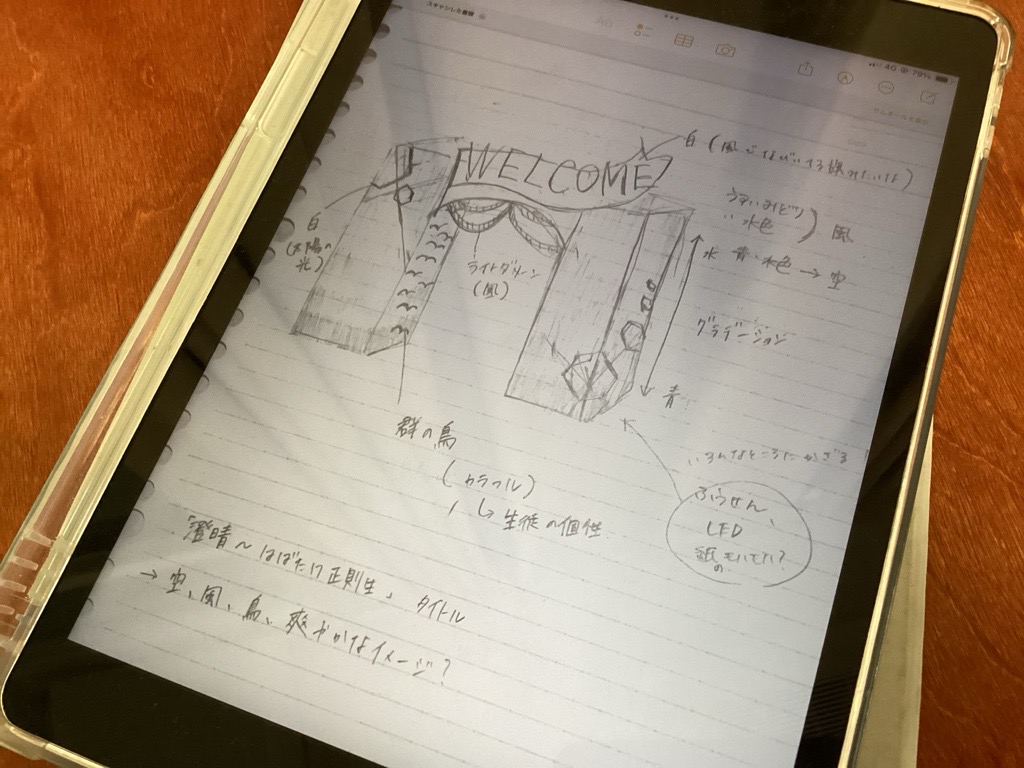 スキャンした書類
4G 79%
WELCOME
白(風でなびいてる旗みたいな)
うすいみどり
水色
風
白
(太陽の
光)
ライトグリーン
(風)
水 青 水色 → 空
グラデーション
青
群の鳥
(カラフル)
↳ 生徒の個性
いろんなところにかざる
ふうせん、
LED
紙の
「澄晴〜はばたけ正則生」 タイトル
→ 空、風、鳥、爽やかなイメージ?